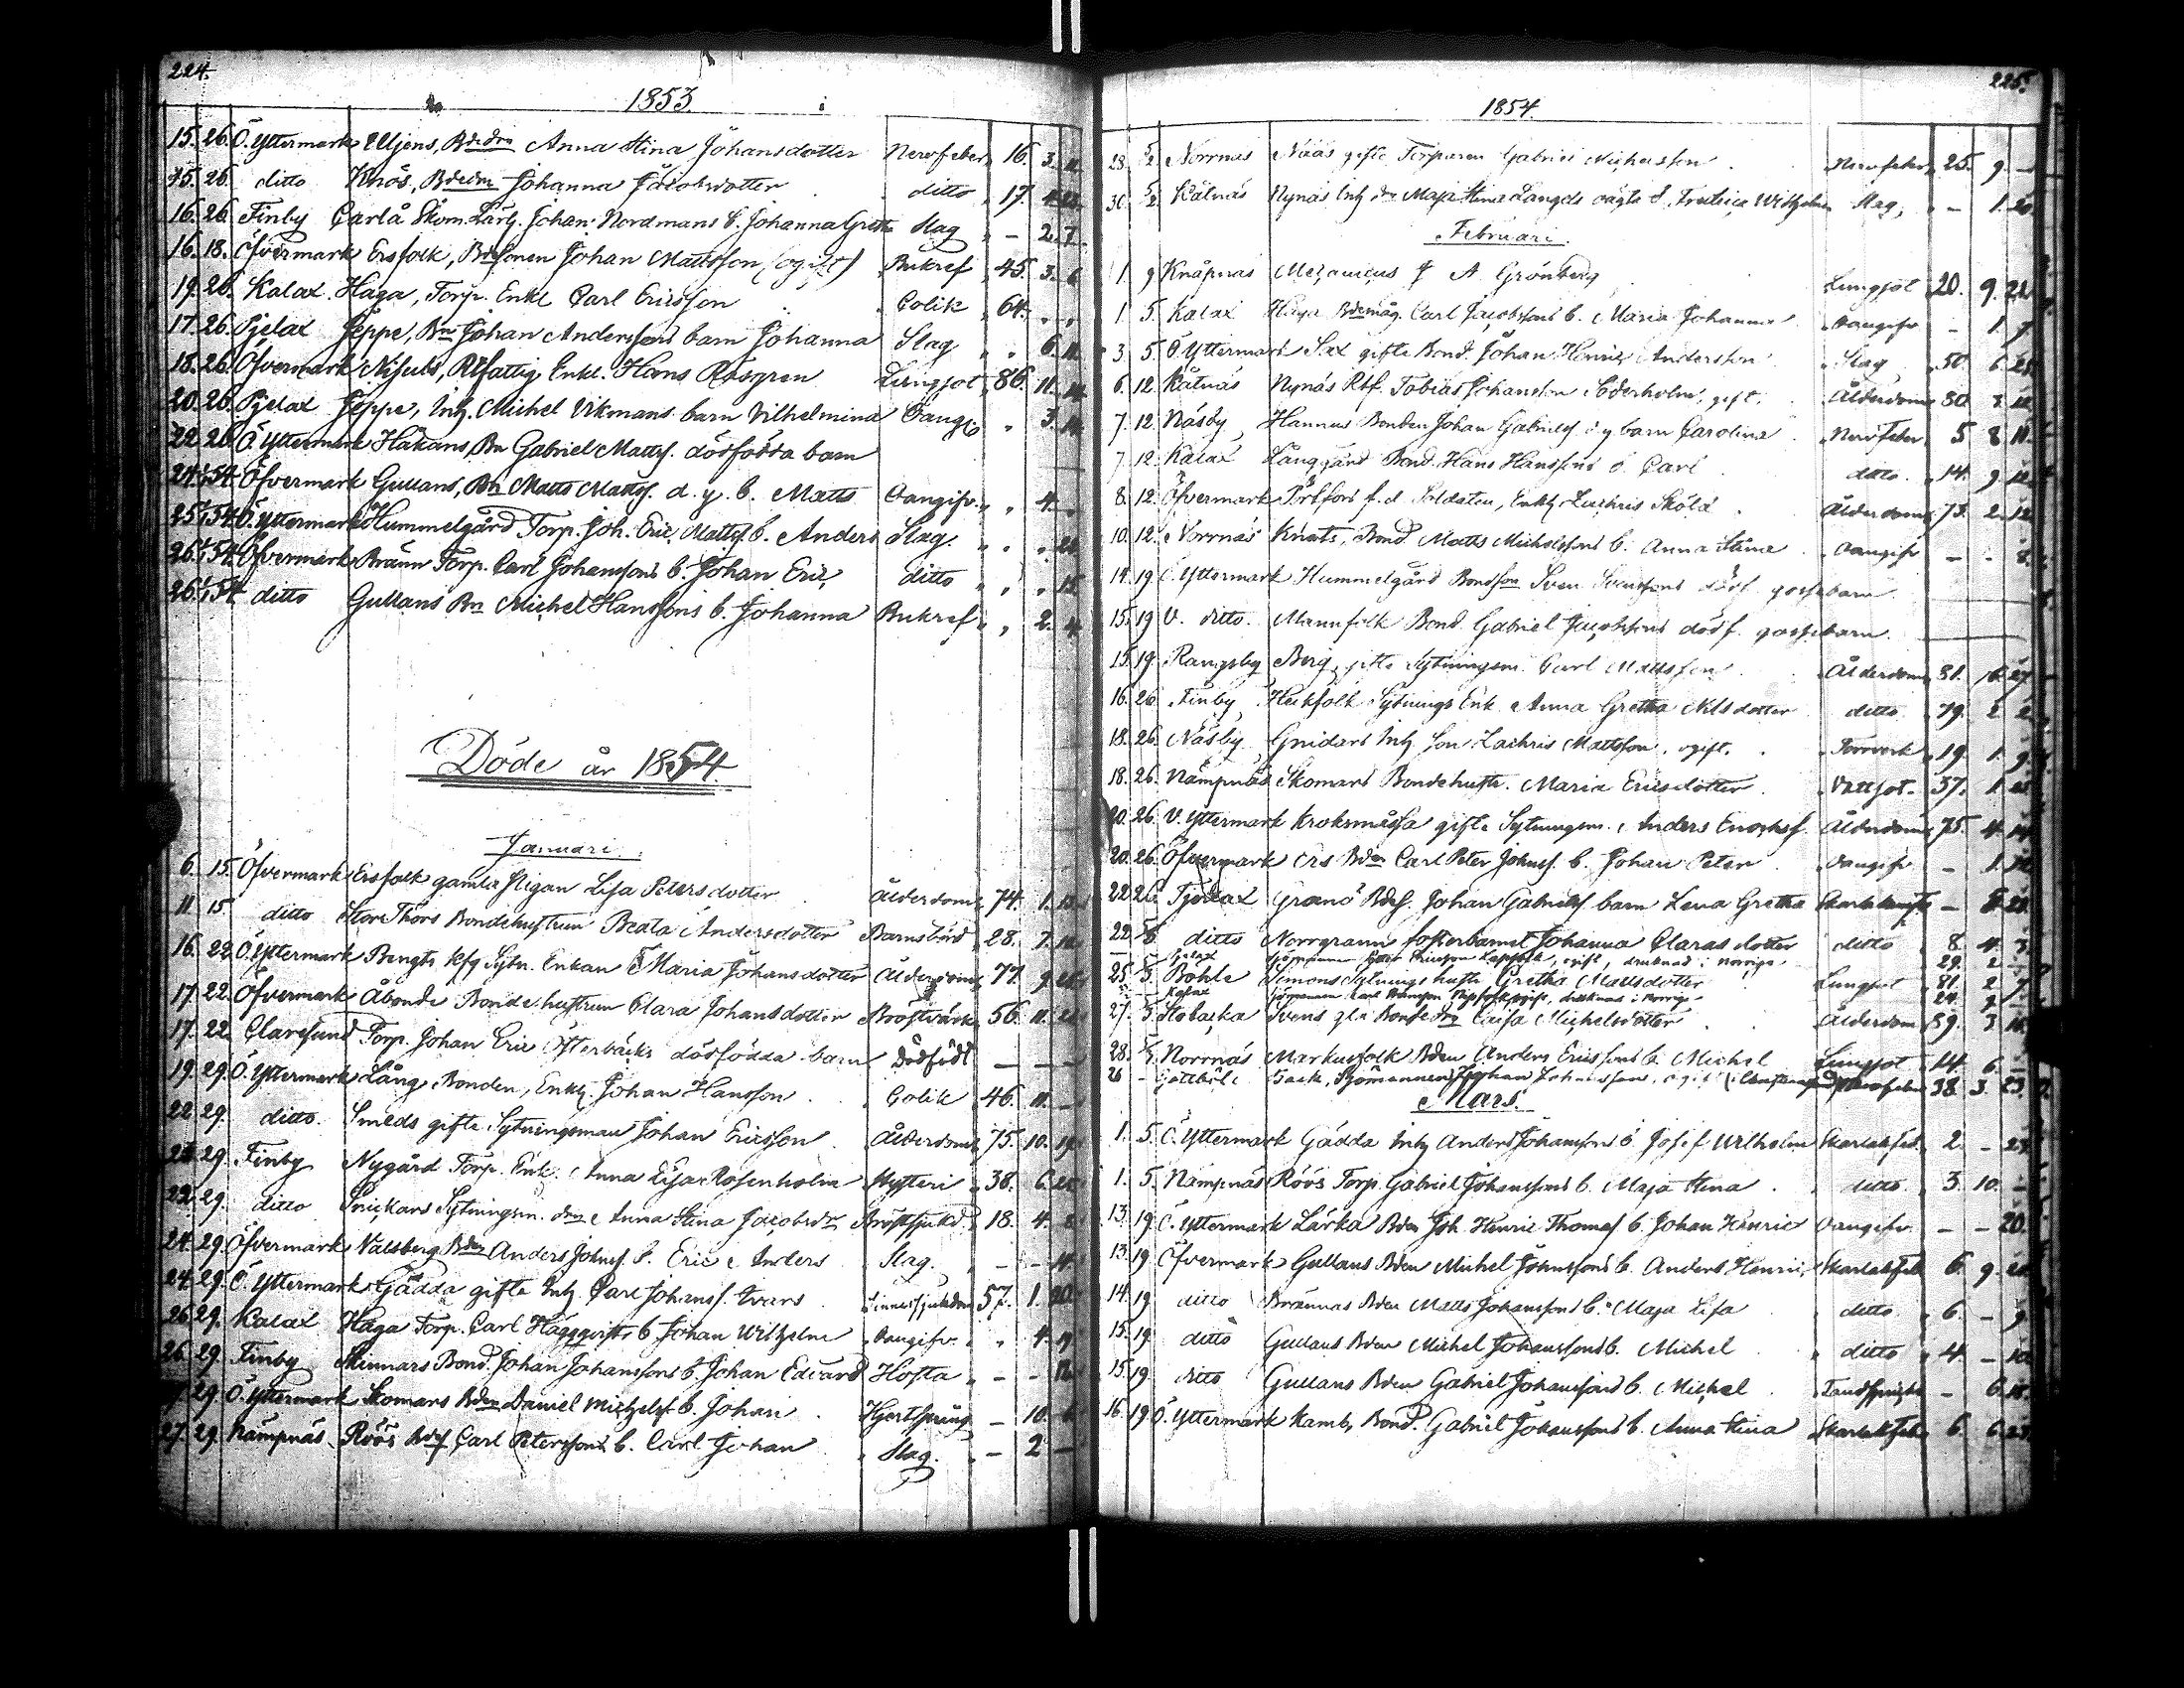 224.
1853.
15. 26. Ö. Yttermark Eljens, Bdedrn Anna Stina Johansdotter Nervfeber 16. 3. 11
15. 26. ditto Knös, Bdedrn Johanna Jacobsdotter ditto 17.
16. 26. Finby Carlå Skom. Lärl. Johan Nordmans b. Johanna Greta Slag – 2. 7.
16. 18. Öfvermark Ersfolk, Bdesonen Johan Mattsson (ogift) Bukref 45. 3. 6
19. 26. Kalax Haga, Torp. Enkl. Carl Ericsson Colik 64.
17. 26. Pjelax Jeppe, Bn Johan Anderssons barn Johanna Slag 6. 11.
18. 26. Öfvermark Nisuls, Rtfattig Enkl. Hans Rosgren Lungsot 86. 11. 14
20. 26. Pjelax Jeppe, Inh. Michel Vikmans barn Vilhelmina Oangif 3. 14
22. 26. Ö. Yttermark Håkans Bn Gabriel Mattss. dödfödda barn
24. 1/1 54. Öfvermark Gullans, Bn Matts Mattss. d. y. b. Matts Oangifv. 4.
25. 1/1 54. Ö. Yttermark Hummelgård Torp. Joh. Eric Mattss. b. Anders Slag.
26. 1/1 54 Öfvermark Bränn Torp. Carl Johanssons b. Johan Eric ditto 15
26. 1/1 54 ditto Gullans Bn Michel Hanssons b. Johanna Bukref 2. 4.
Döde år 1854.
Januari.
6. 15. Öfvermark Ersfolk gamla pigan Lisa Petersdotter Ålderdom 74. 1. 12
11 15. ditto Store Thors Bondehustrun Beata Andersdotter Barnsbörd 28. 7.
16. 22. Ö. Yttermark Bengts Sytn. Enkan Maria Johansdotter Ålderdom 77. 9
17. 22. Öfvermark Åbonde Bondehustrun Clara Johansdotter Bröstvärk 56. 11.
17. 22. Claresund Torp. Johan Eric Österbacks dödfödda barn Dödfödt — — —
19. 29. Ö. Yttermark Lång, Bonden, Enkl. Johan Hansson Colik 46. 11. —
22. 29. ditto. Smeds gifte Sytningsman Johan Ericsson Ålderdom 75. 10. 19.
29. Finby Nygård Torp. Enk. Anna Lisa Rosenholm Hysteri 38. 6.
22. 29. ditto Snickars Sytningsm. drn Anna Stina Jacobsdr Bröstsjukd. 18. 4.
24. 29. Öfvermark Valsberg Bden Anders Johnss. b. Eric Anders Slag. – – 14
24. 29. Ö. Yttermark Gädda gifte Inh. Carl Johanss. Evars Sinnessjukdom 57. 1. 20.
26 29. Kalax Haga Torp. Carl Häggqvists b Johan Wilhelm Oangifv. 4. 19
26. 29. Finby Skinnars Bond. Johan Johanssons b. Johan Edvard Hosta – –
29. Ö. Yttermark Skomars Bden Daniel Michelss. b. Johan Hjertspräng – 10.
27. 29. Nämpnäs Röös Carl Peterssons b. Carl Johan Slag. – 2 –
225.
1854.
28. 5/2 Norrnäs Nääs gifte Torparen Gabriel Michelsson Nervfeber 25. 9. –
30. 5/2 Kåtnäs Nynäs Inh. drn Maja Stina Långels oägta b. Fredrica Wilhelm Slag, – 1.
Februari.
1. 9 Knåpnäs Mecanicus J A. Grönberg Lungsot 20. 9. 22
1. 5. Kalax Haga Bdemåg. Carl Jacobssons b. Maria Johanna Oangifv – 1. 7
3. 5. Ö. Yttermark Sax gifte Bond. Johan Henric Andersson Slag 50. 6.
6. 12. Kåtnäs Nynäs Rtf. Tobias Johansson Söderholm, gift. Ålderdom 80. 3.
7. 12. Näsby Hannus Bonden Johan Gabrielss. d y barn Carolina Nervfeber 5 8 11.
7. 12. Kalax Långgård Bond. Hans Hanssons b. Carl ditto. 14. 9
8. 12. Öfvermark Pörtfors f.d. Soldaten, Enkl. Zachris Sköld Ålderdom 73. 2. 12
10. 12. Norrnäs Knuts, Bond. Matts Michelssons b. Anna Stina Oangifv – – 8.
14. 19 Ö. Yttermark Hummelgård Bondson Sven Svenssons dödf. gossebarn
15. 19 V. ditto. Mannfolk Bond. Gabriel Jacobssons dödf. gossebarn.
15. 19. Rangsby Berg, gifte Sytningsm. Carl Mattsson Ålderdom 81. 27
16. 26 Finby Heikfolk Sytnings Enk. Anna Gretha Nilsdotter ditto 79. 2 2.
18. 26. Näsby Gnidars Inh. son Zachris Mattsson, ogift. Torrverk 19 1. 9.
18. 26. Nämpnäs Skomars Bondehustr. Maria Ericsdotter Vattsot. 37. 1
20. 26. V. Yttermark Kroksmässa gifte Sytningsm. Anders Enochss. Ålderdom 75. 4. 14
20. 26. Öfvermark Ers Bden Carl Peter Johnss. b. Johan Peter Oangifv – 1.
22 26. Tjörlax Granö Bdes. Johan Gabrielss. barn Lena Gretha –
22. ditto Norrgranns fosterbarnet Johanna Clarasdotter ditto 8. 4. 3
Sjömannen ogift, drunknad i Norrige 29. 2
25. 5/3 Böhle Simons Sytnings hustr. Gretha Mattsdotter Lungsot 81. 2 7
Kalax Sjömannen Carl ogift, drunknad i Norrige 24. 7.
27. 5/3 Hobacka Svens gla Bondedrn Caisa Michelsdotter Ålderdom 59. 3
28. 5/3 Norrnäs Markusfolk Bden Anders Ericssons b. Michel Lungsot 14. 6
26 – Gottböle Isack, Sjömannen Johan Johansson, ogift 38. 3. 23.
Mars.
1. 5. Ö. Yttermark Gädda Inh. Anders Johanssons b. Josef Wilhelm Skarlakfeb. 2. – 27
1. 5. Nämpnäs Röös Torp. Gabriel Johanssons b. Maja Stina ditto 3. 10. –
13. 19 Ö. Yttermark Lärka Bden Joh. Henric Thomass. b. Johan Henric Oangifv. – – 20.
13. 19 Öfvermark Gullans Bden Michel Johanssons b. Anders Henric Skarlakfeb 6. 9.
14. 19 ditto Brännas Bden Matts Johanssons b. Maja Lisa ditto 6. – 9
15. 19 ditto Gullans Bden Michel Johanssons b. Michel ditto 4. –
15. 19. ditto Gullans Bden Gabriel Johanssons b. Michel Tandspricka – 6.
16. 19 Ö. Yttermark Kamb, Bond. Gabriel Johanssons b. Anna Stina Skarlakfeb 6. 6